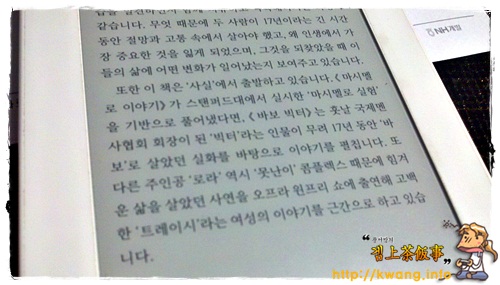 같습니다. 무엇 때문에 두 사람이 17년이라는 긴 시간
동안 절망과 고통 속에서 살아야 했고, 왜 인생에서 가
장 중요한 것을 잃게 되었으며, 그것을 되찾았을 때 이
들의 삶에 어떤 변화가 일어났는지 보여주고 있습니다.
또한 이 책은 '사실'에서 출발하고 있습니다. 《마시멜
로 이야기》가 스탠퍼드대에서 실시한 '마시멜로 실험'
을 기반으로 풀어냈다면, 《바보 빅터》는 훗날 국제멘
사협회 회장이 된 '빅터'라는 인물이 무려 17년 동안 '바
보'로 살았던 실화를 바탕으로 이야기를 펼칩니다. 또
다른 주인공 '로라' 역시 '못난이' 콤플렉스 때문에 힘겨
운 삶을 살았던 사연을 오프라 윈프리 쇼에 출연해 고백
한 '트레이시'라는 여성의 이야기를 근간으로 하고 있습
니다.
집上茶飯事
http://kwang.info